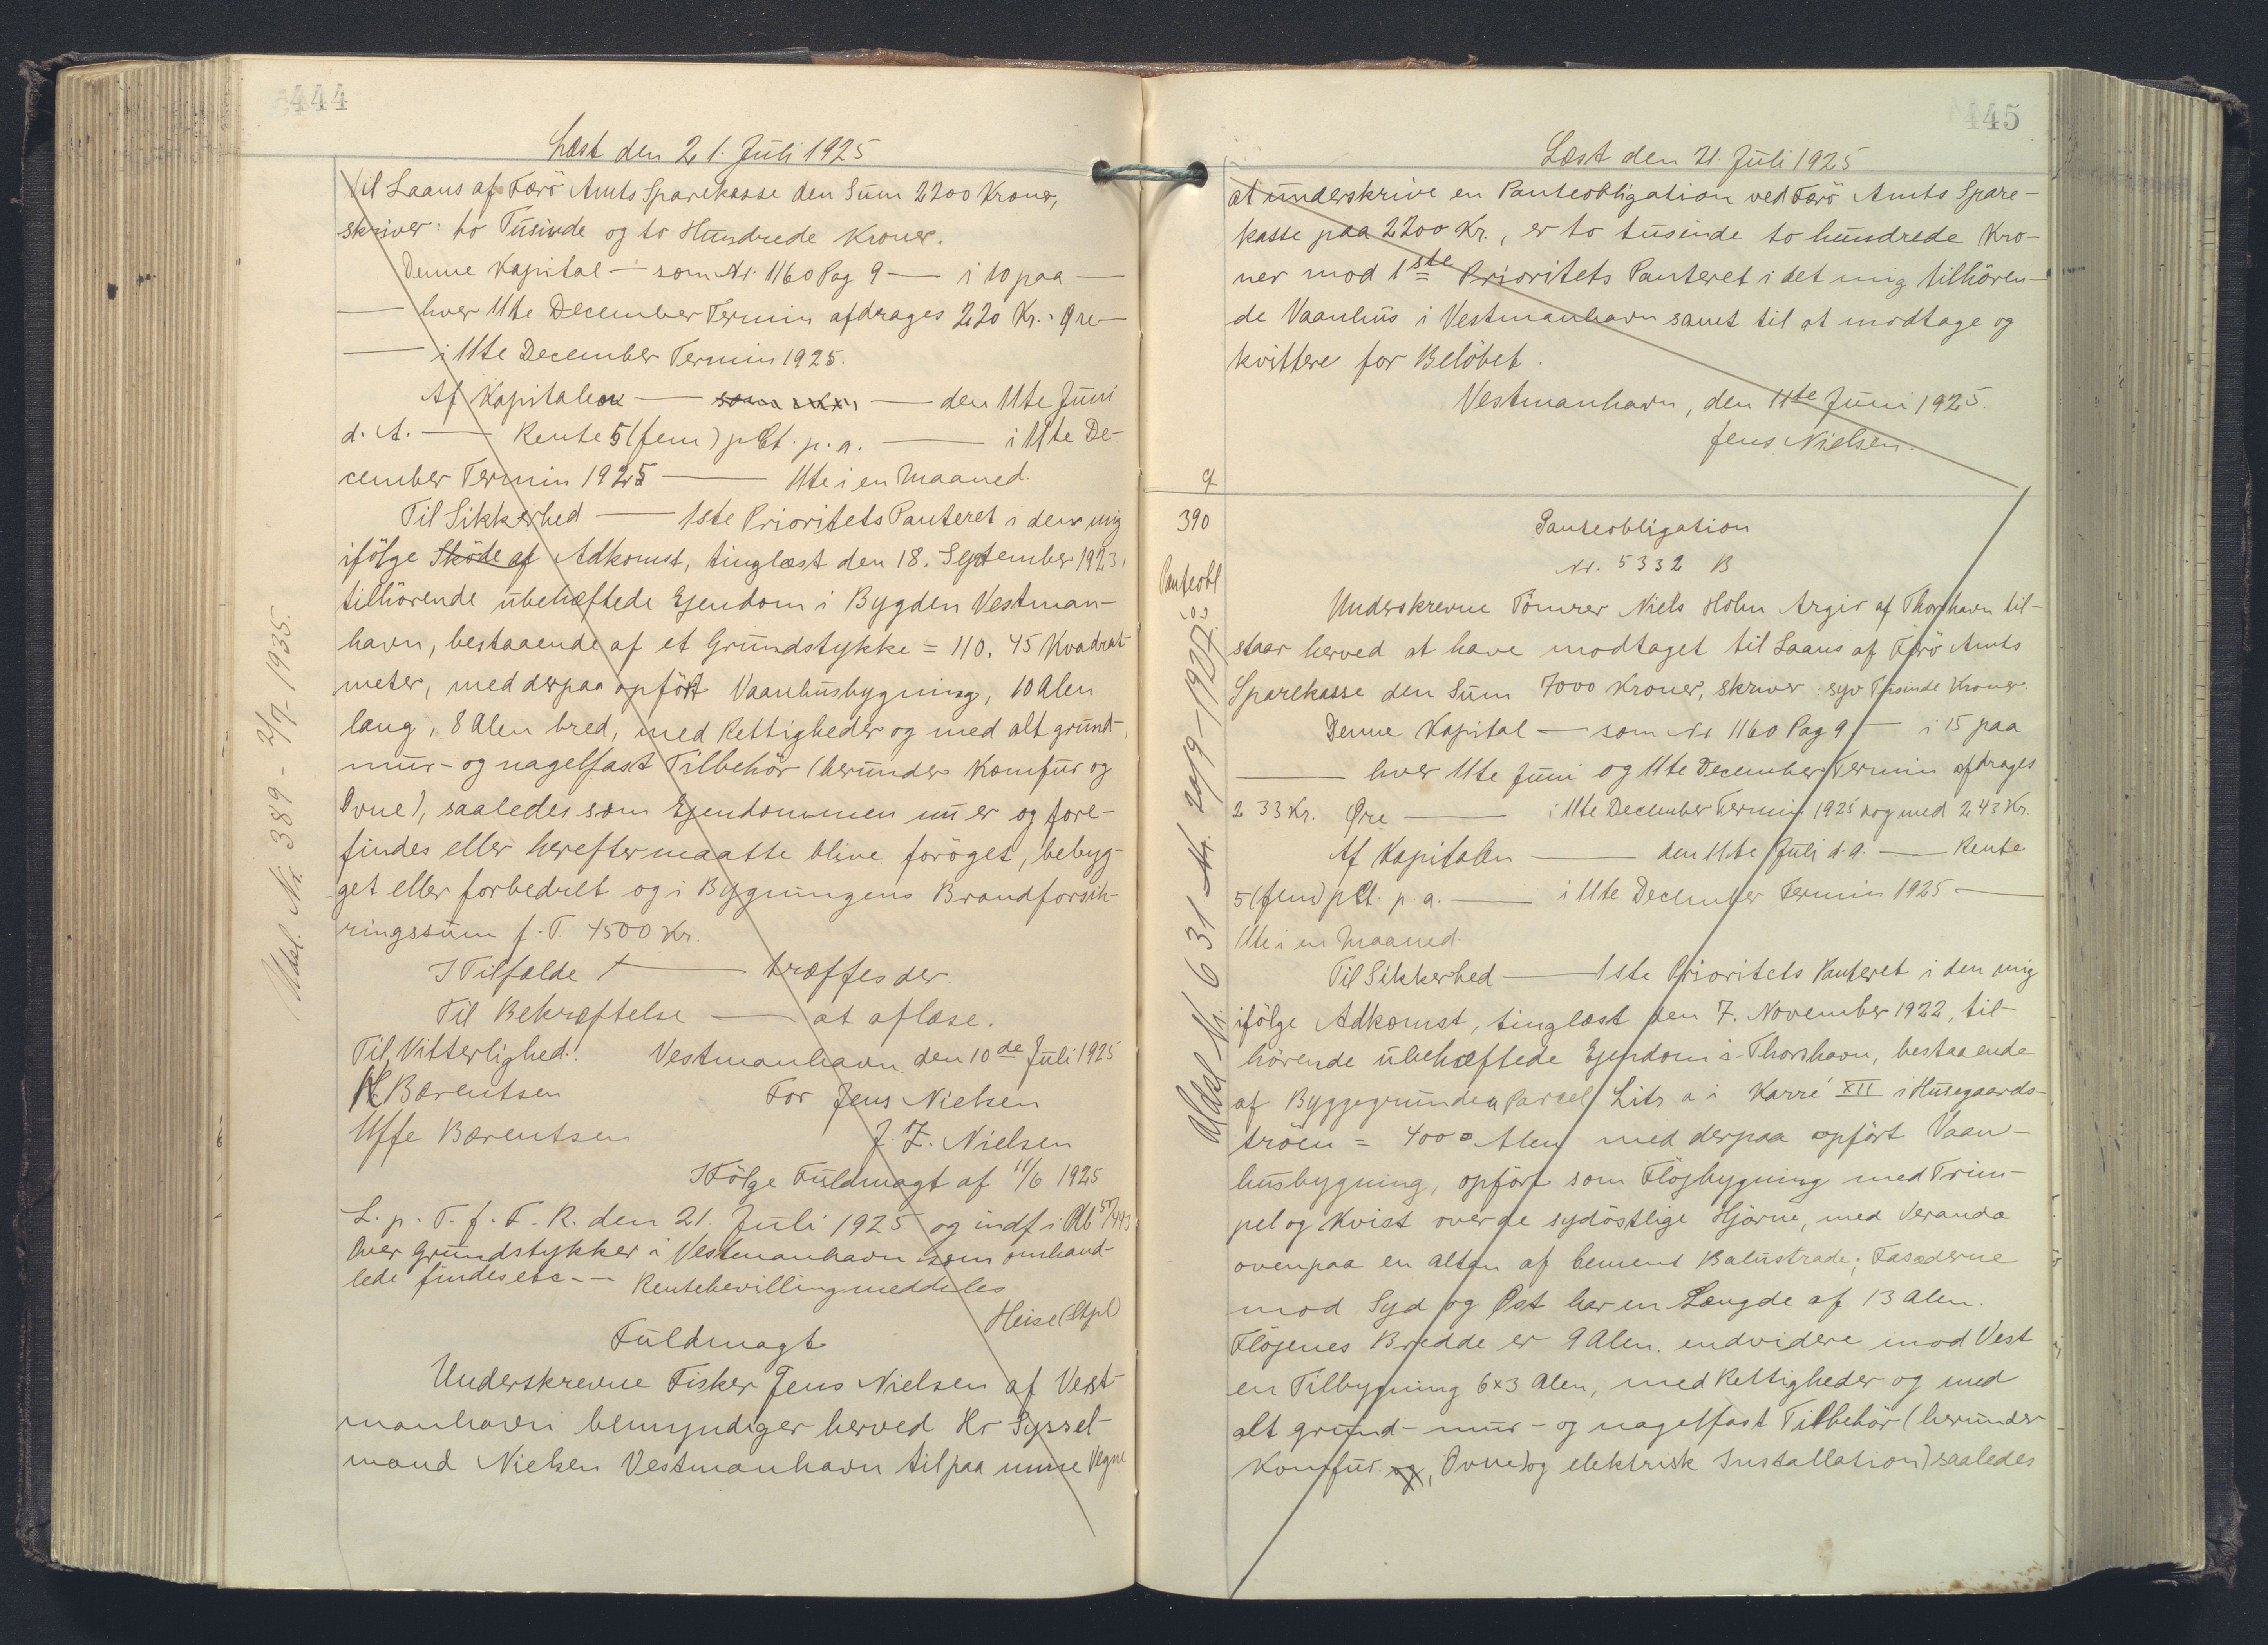 444
Læst den 21. Juli 1925
til Laans af Færö Amts Sparekasse den Sum 2200 Kroner,
skriver: to Tusinde og to Hundrede Kroner.
Denne Kapital — som Nr. 1160 Pag 9 — i 10 paa —
— hver 11te December Termin afdrages 220 Kr. : Øre —
— i 11te December Termin 1925.
Af Kapitalen — — den 11te Juni
d. A. — Rente 5 (fem) pCt. p. a. — i 11te De-
cember Termin 1925 — 11te i en Maaned.
Til Sikkerhed — 1ste Prioritets Panteret i den mig
ifölge Sköde af Adkomst, tinglæst den 18. September 1923,
tilhörende übehæftede Ejendom i Bygden Vestman-
havn, bestaaende af et Grundstykke = 110,45 Kvadrat-
meter, med derpaa opfört Vaanhusbygning, 10 Alen
lang, 8 Alen bred, med Rettigheder og med alt grund-,
mur- og nagelfast Tilbehör (herunder Komfur og
Ovne), saaledes som Ejendommen nu er og fore-
findes eller herefter maatte blive foröget, bebyg-
get eller forbedret og i Bygningens Brandforsik-
ringssum f. T. 4500 Kr.
I Tilfælde — træffes der.
Til Bekræftelse — at aflæse.
Til Vitterlighed: Vestmanhavn, den 10de Juli 1925
Bærentsen For Jens Nielsen
Uffe Bærentsen J. Z. Nielsen
I Fölge Fuldmagt af 11/6 1925
L. p. T. f. F. R. den 21. Juli 1925 og indf. i Ptb 57/443
Over Grundstykker i Vestmanhavn som omhand-
lede findes etc. — Rentebevilling meddeles
Heise (Stpl)
Fuldmagt
Underskrevne Fisker Jens Nielsen af Vest-
manhavn bemyndiger herved Hr Syssel-
mand Nielsen Vestmanhavn til paa mine Vegne
Udsl. Nr. 389 - 2/7 - 1935.
445
Læst den 21. Juli 1925
at underskrive en Panteobligation ved Færö Amts Spare-
kasse paa 2200 Kr., er to tusinde to hundrede Kro-
ner mod 1ste Prioritets Panteret i det mig tilhören-
de Vaanhus i Vestmanhavn samt til at modtage og
kvittere for Belöbet.
Vestmanhavn, den 11te Juni 1925.
Jens Nielsen.
390
Panteobl
Panteobligation
Nr. 5332 B
Underskrevne Tömrer Niels Holm Argir af Thorshavn til-
staar herved at have modtaget til Laans af Færö Amts
Sparekasse den Sum 7000 Kroner, skriver: syv Tusinde Kroner.
Denne Kapital — som Nr 1160 Pag 9 — i 15 paa
— hver 11te Juni og 11te December Termin afdrages
233 Kr. Øre — i 11te December Termin 1925 dog med 243 Kr.
Af Kapitalen — den 11te Juli d. A. — Rente
5 (fem) pCt. p. a. — i 11te December Termin 1925 —
11te i en Maaned.
Til Sikkerhed — 1ste Prioritets Panteret i den mig
ifölge Adkomst, tinglæst den 7. November 1922, til-
hörende übehæftede Ejendom i Thorshavn, bestaaende
af Byggegrunden Parcel Litr a i Karré XII i Husegaards-
tröen = 400 □ Alen med derpaa opfört Vaan-
husbygning, opfört som Flöjbygning med Trim-
pel og Kvist over de sydöstlige Hjörne, med Veranda
ovenpaa en Altan af Cement Balustrade; Fasaderne
mod Syd og Øst har en Længde af 13 Alen.
Flöjenes Bredde er 9 Alen. endvidere mod Vest
en Tilbygning 6x3 Alen, med Rettigheder og med
alt grund- mur- og nagelfast Tilbehör (herunder
Komfur og, Ovne) og elektrisk Installation) saaledes
Udsl. Nr. 631